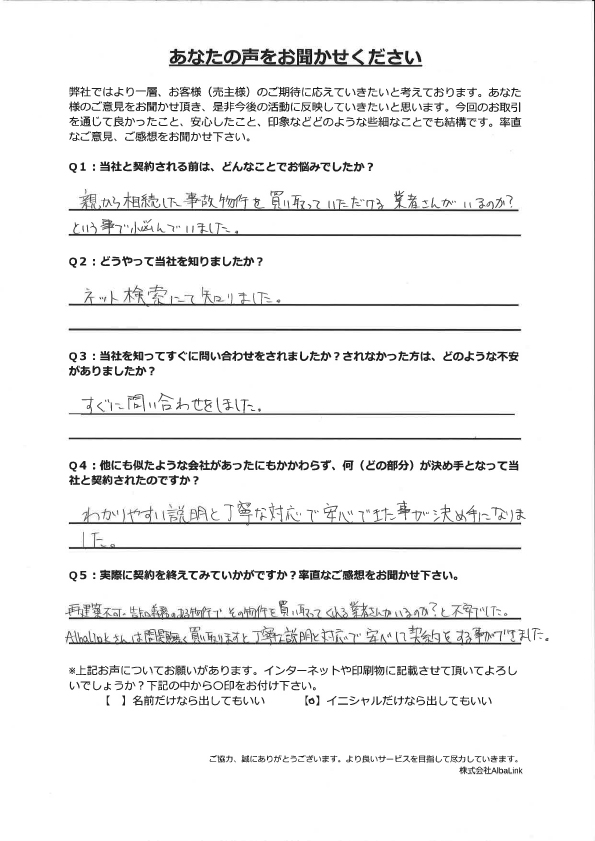 あなたの声をお聞かせください
弊社ではより一層、お客様（売主様）のご期待に応えていきたいと考えております。あなた
様のご意見をお聞かせ頂き、是非今後の活動に反映していきたいと思います。今回のお取引
を通じて良かったこと、安心したこと、印象などどのような些細なことでも結構です。率直
なご意見、ご感想をお聞かせ下さい。
Q１：当社と契約される前は、どんなことでお悩みでしたか？
親から相続した事故物件を買い取っていただける業者さんがいるのか？
という事で悩んでいました。
Q２：どうやって当社を知りましたか？
ネット検索にて知りました。
Q３：当社を知ってすぐに問い合わせをされましたか？されなかった方は、どのような不安
がありましたか？
すぐに問い合わせをしました。
Q４：他にも似たような会社があったにもかかわらず、何（どの部分）が決め手となって当
社と契約されたのですか？
わかりやすい説明と丁寧な対応で安心できた事が決め手になりま
した。
Q５：実際に契約を終えてみていかがですか？率直なご感想をお聞かせ下さい。
再建築不可、告知義務のある物件で その物件を買い取ってくれる業者さんがいるのか？と不安でした。
AlbaLinkさんは問題無く買い取りますと丁寧な説明と対応で安心して契約をする事ができました。
※上記お声についてお願いがあります。インターネットや印刷物に記載させて頂いてよろし
いでしょうか？下記の中から〇印をお付け下さい。
【　】名前だけなら出してもいい　【o】イニシャルだけなら出してもいい
ご協力、誠にありがとうございます。より良いサービスを目指して尽力していきます。
株式会社AlbaLink